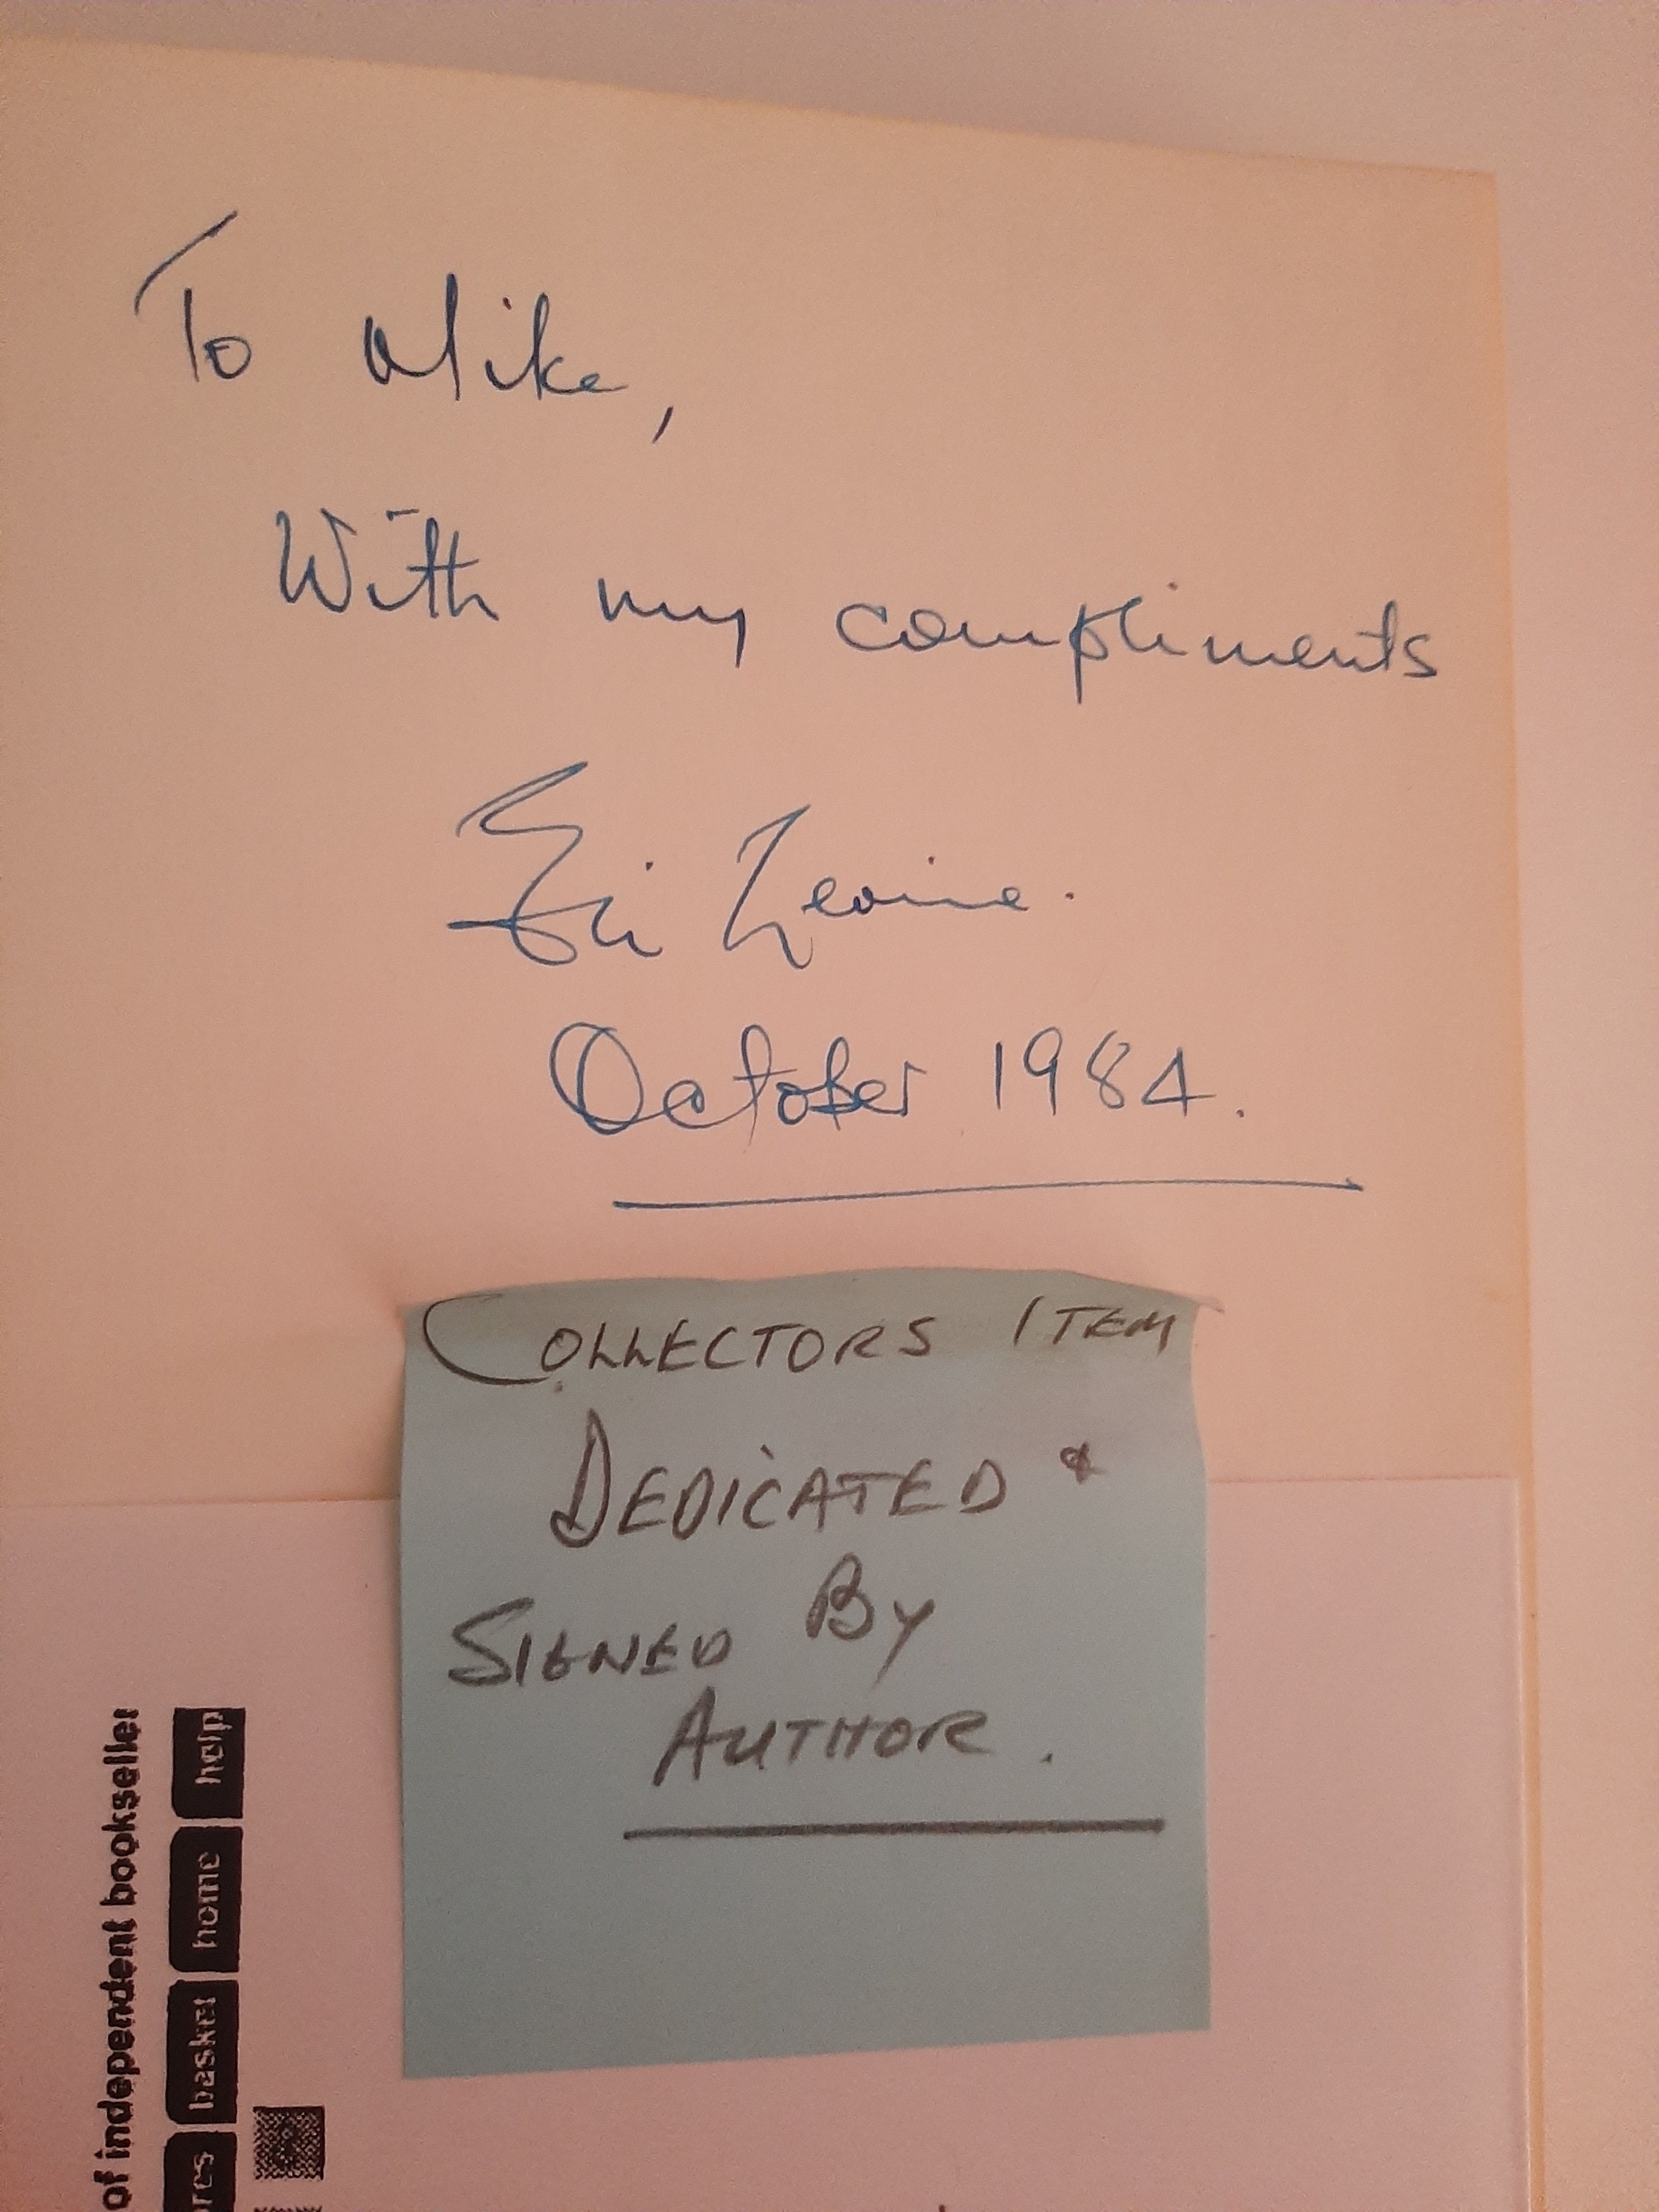 To Mike,
With my compliments
Levine.
October 1984.
COLLECTORS ITEM
DEDICATED &
SIGNED BY
AUTHOR.
of independent bookseller
help
home
basket